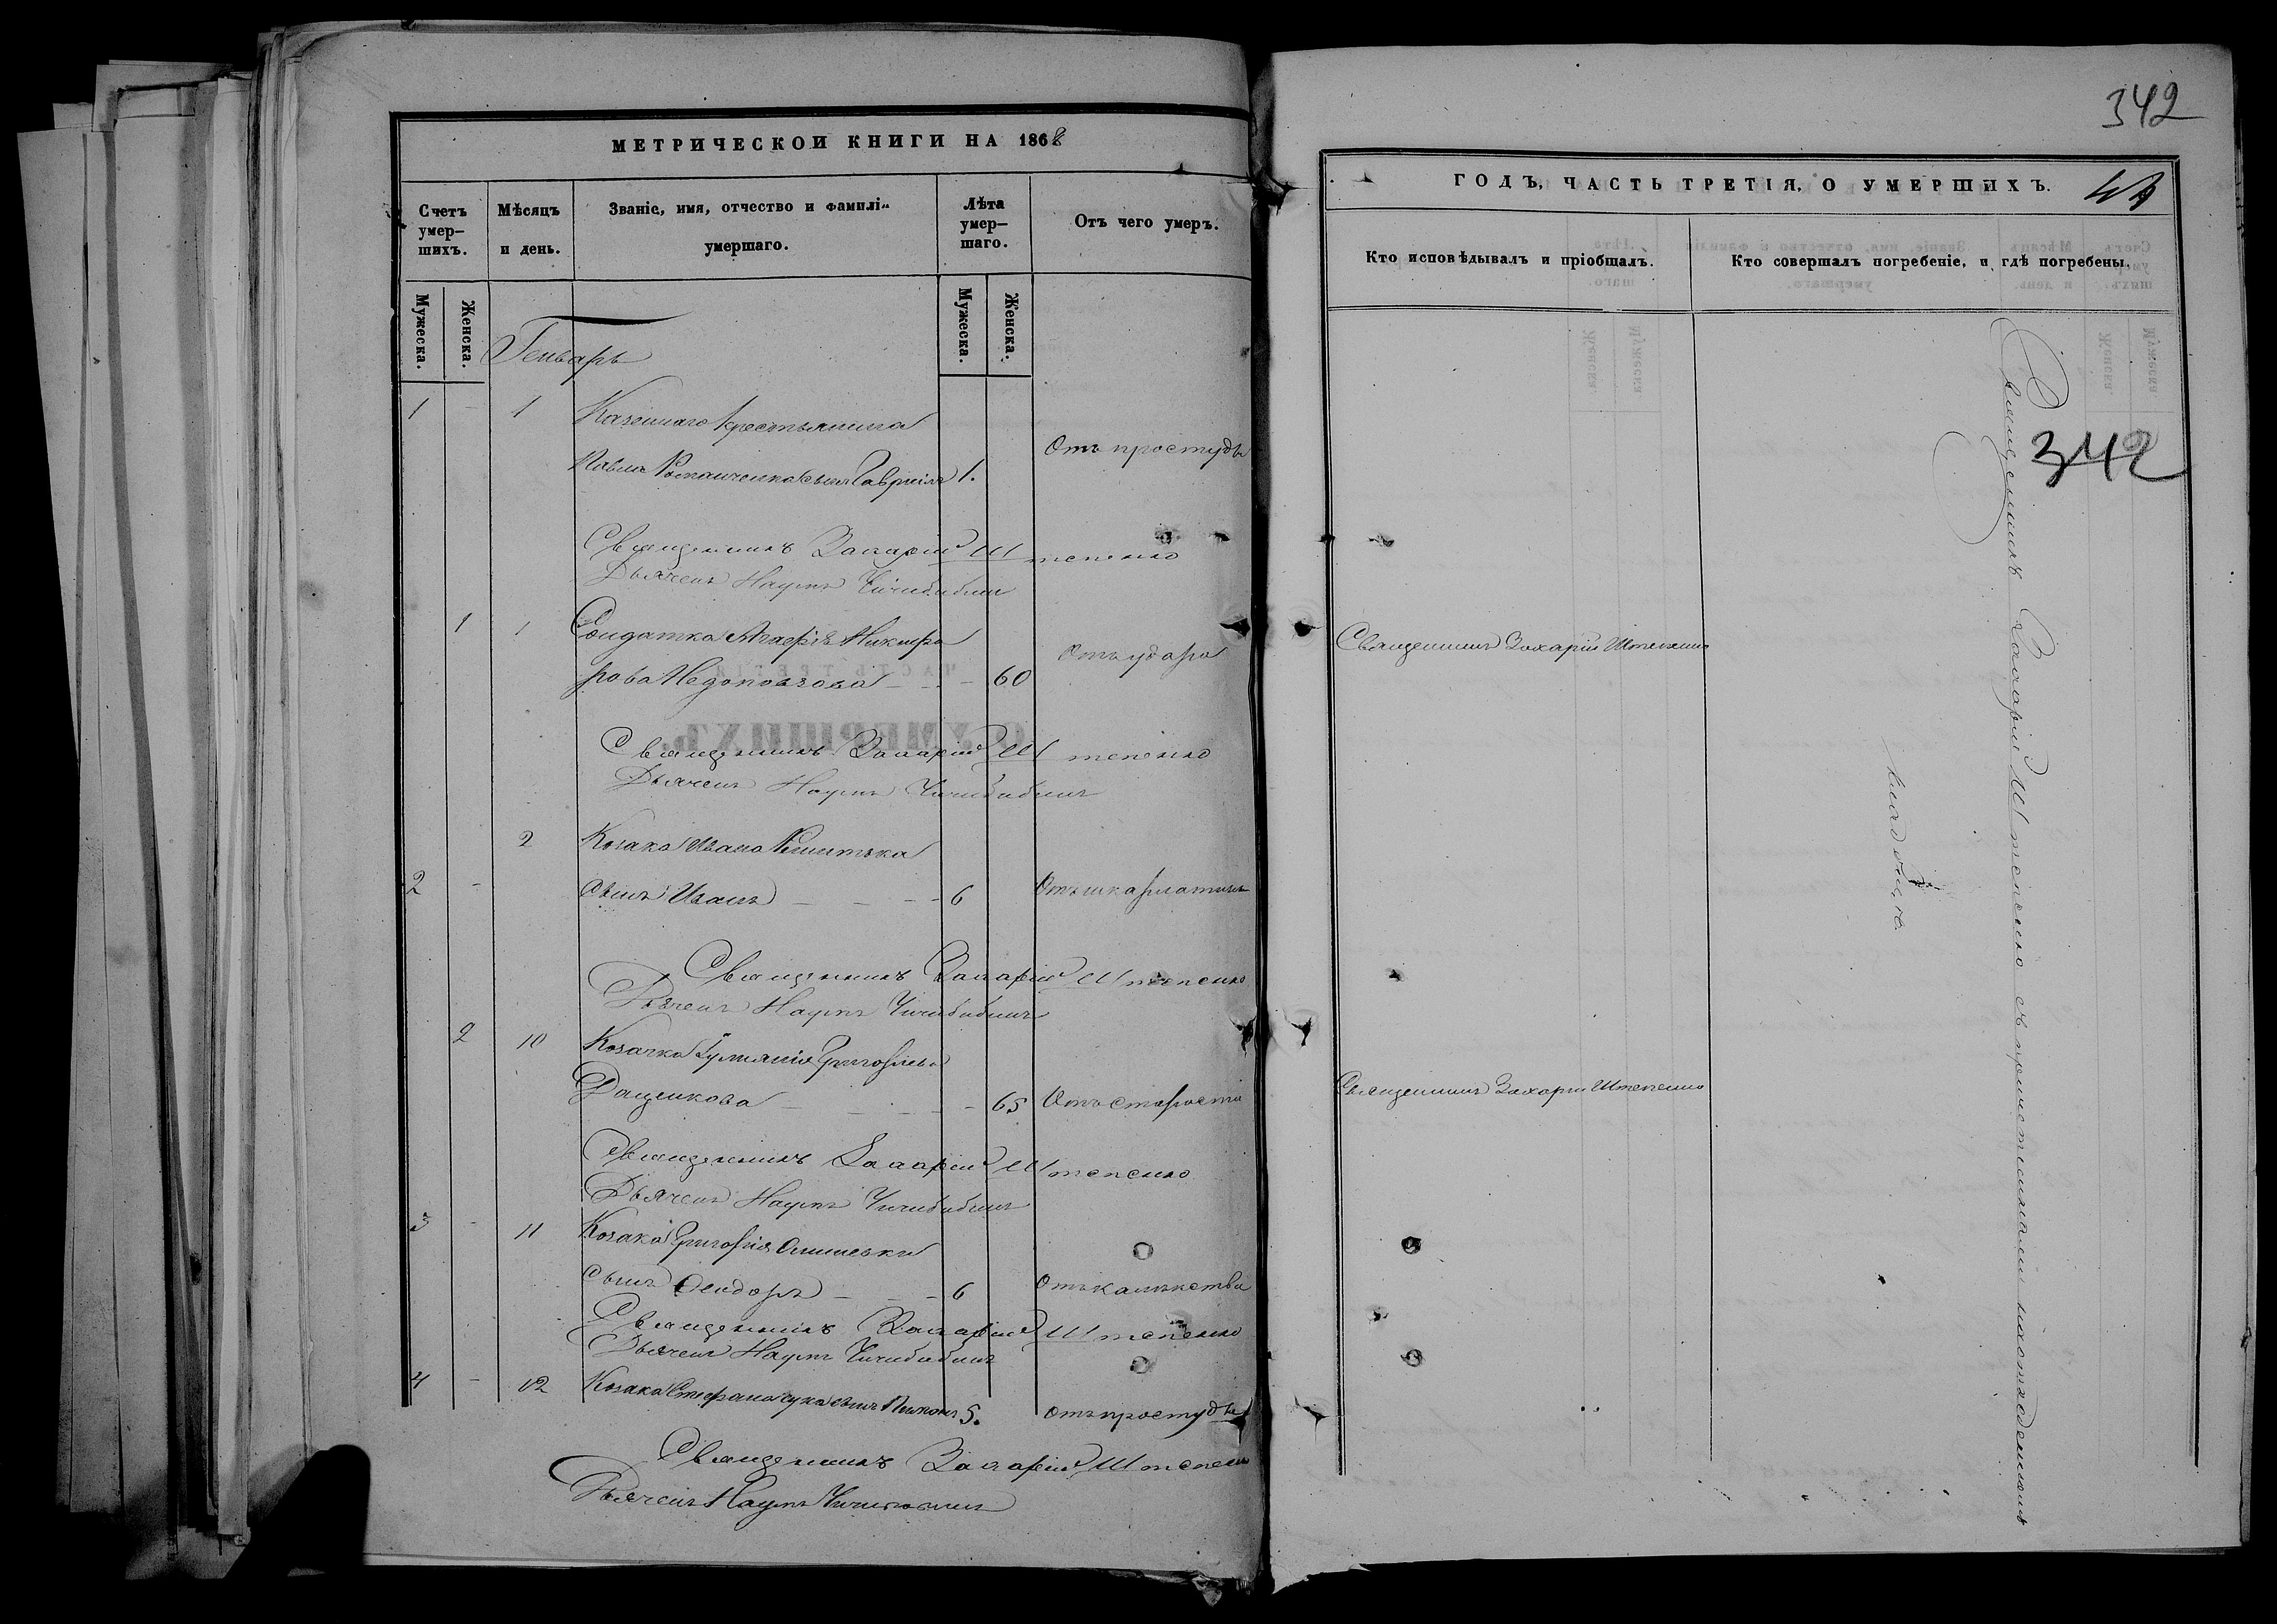 МЕТРИЧЕСКОЙ КНИГИ НА 1868
Счетъ умершихъ.
Мѣсяцъ и день.
Званіе, имя, отчество и фамилія умершаго.
Лѣта умершаго.
Отъ чего умеръ.
Мужеска.
Женска.
Мужеска.
Женска.
Генварь
1 - 1 Казеннаго крестьянина
Павла Романченка сынъ Гавріилъ 1. Отъ простуды
Священникъ Захарій Штепенко
Дьячекъ Наумъ
1 1 Солдатка Никифо
рова 60 Отъ удара
Священникъ Захарій Штепенко
Дьячекъ Наумъ
2 Козака Ивана
2 - сынъ Иванъ - - - 6 Отъ шкарлатины
Священникъ Захарій Штепенко
Дьячекъ Наумъ
2 10 Козачка Григорьева
Доценкова - - - - 65 Отъ старости
Священникъ Захарій Штепенко
Дьячекъ Наумъ
3 - 11 Козака Григорія
сынъ Феодоръ - - - 6 Отъ калѣкства
Священникъ Захарій Штепенко
Дьячекъ Наумъ
4 - 12 Козака Стефана сынъ 5. Отъ простуды
Священникъ Захарій Штепенко
Дьячекъ Наумъ
342
ГОДЪ, ЧАСТЬ ТРЕТІЯ, О УМЕРШИХЪ.
Кто исповѣдывалъ и пріобщалъ.
Кто совершалъ погребеніе, и гдѣ погребены.
342
Священникъ Захарій Штепенко
Священникъ Захарій Штепенко
Священникъ Захарій Штепенко съ причетниками на приходскомъ
кладбищѣ